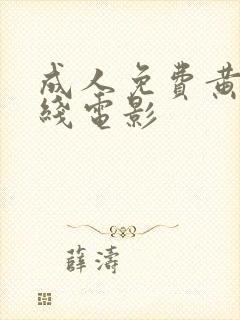 成人免費黄
綫電影
薛濤